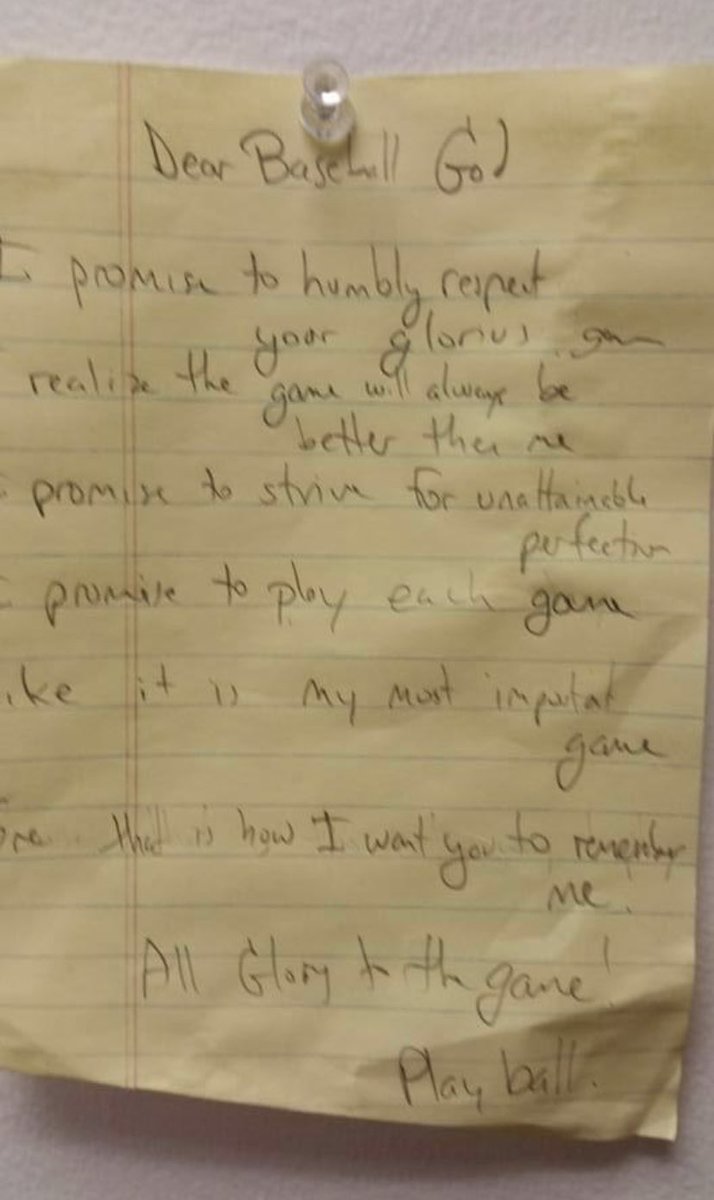 Dear Baseball God
I promise to humbly respect
your glorius game
realize the game will always be
better then me
promise to strive for unattainable
perfection
I promise to play each game
like it is my most important
game
that is how I want you to remember
me.
All Glory to the game!
Play ball.